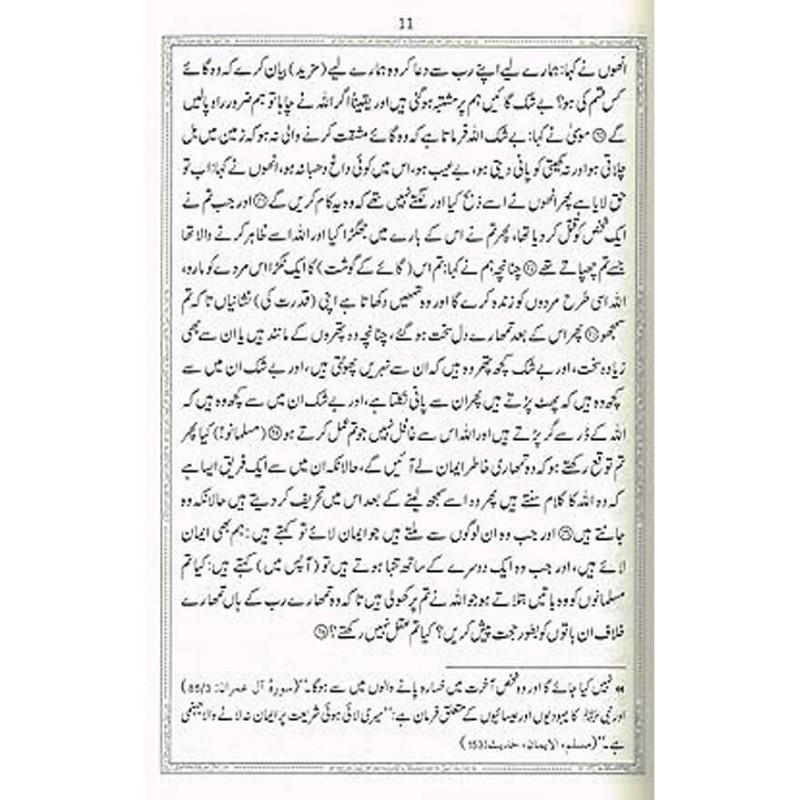 11
انھوں نے کہا: ہمارے لیے اپنے رب سے دعا کر وہ ہمارے لیے (مزید) بیان کرے کہ وہ گائے
کس قسم کی ہو؟ بے شک گائیں ہم پر مشتبہ ہوگئی ہیں اور یقیناً اگر اللہ نے چاہا تو ہم ضرور راہ پالیں
گے ⑦⓪ موسیٰ نے کہا: بے شک اللہ فرماتا ہے کہ وہ گائے مشقت کرنے والی نہ ہو کہ زمین میں ہل
چلاتی ہو اور نہ کھیتی کو پانی دیتی ہو، بے عیب ہو، اس میں کوئی داغ دھبا نہ ہو، انھوں نے کہا: اب تو
حق لایا ہے پھر انھوں نے اسے ذبح کیا اور لگتے نہیں تھے کہ وہ یہ کام کریں گے ⑦① اور جب تم نے
ایک شخص کو قتل کر دیا تھا، پھر تم نے اس کے بارے میں جھگڑا کیا اور اللہ اسے ظاہر کرنے والا تھا
جسے تم چھپاتے تھے ⑦② چنانچہ ہم نے کہا: تم اس (گائے کے گوشت) کا ایک ٹکڑا اس مردے کو مارو،
اللہ اسی طرح مردوں کو زندہ کرے گا اور وہ تمھیں دکھاتا ہے اپنی (قدرت کی) نشانیاں تاکہ تم
سمجھو ⑦③ پھر اس کے بعد تمھارے دل سخت ہو گئے، چنانچہ وہ پتھروں کے مانند ہیں یا ان سے بھی
زیادہ سخت، اور بے شک کچھ پتھر وہ ہیں کہ ان سے نہریں پھوٹتی ہیں، اور بے شک ان میں سے
کچھ وہ ہیں کہ پھٹ پڑتے ہیں پھر ان سے پانی نکلتا ہے، اور بے شک ان میں سے کچھ وہ ہیں کہ
اللہ کے ڈر سے گر پڑتے ہیں اور اللہ اس سے غافل نہیں جو تم عمل کرتے ہو ⑦④ (مسلمانو!) کیا پھر
تم توقع رکھتے ہو کہ وہ تمھاری خاطر ایمان لے آئیں گے، حالانکہ ان میں سے ایک فریق ایسا ہے
کہ وہ اللہ کا کلام سنتے ہیں پھر وہ اسے سمجھ لینے کے بعد اس میں تحریف کر دیتے ہیں حالانکہ وہ
جانتے ہیں ⑦⑤ اور جب وہ ان لوگوں سے ملتے ہیں جو ایمان لائے تو کہتے ہیں: ہم بھی ایمان
لائے ہیں، اور جب وہ ایک دوسرے کے ساتھ تنہا ہوتے ہیں تو (آپس میں) کہتے ہیں: کیا تم
مسلمانوں کو وہ باتیں بتلاتے ہو جو اللہ نے تم پر کھولی ہیں تاکہ وہ تمھارے رب کے ہاں تمھارے
خلاف ان باتوں کو بطور حجت پیش کریں؟ کیا تم عقل نہیں رکھتے؟ ⑦⑥
◄◄ نہیں کیا جائے گا اور وہ شخص آخرت میں خسارہ پانے والوں میں سے ہوگا۔“ (سورۂ آل عمران: 85/3)
اور نبی ﷺ کا یہودیوں اور عیسائیوں کے متعلق فرمان ہے: ”میری لائی ہوئی شریعت پر ایمان نہ لانے والا جہنمی
ہے۔“ (مسلم، الایمان، حدیث: 153)